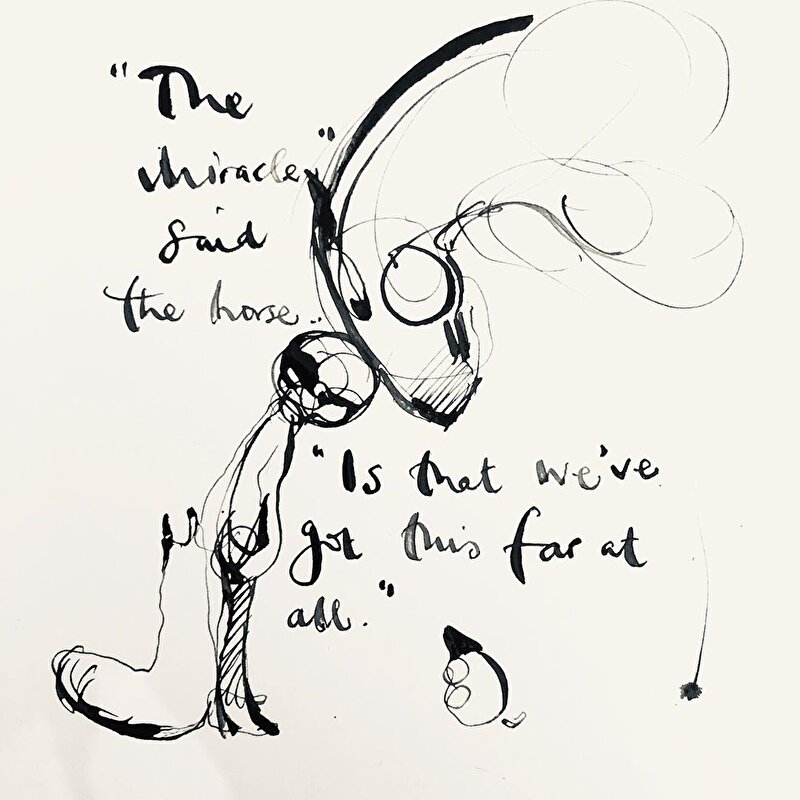 "The
miracle,"
said
the horse..
"Is that we've
got this far at
all."